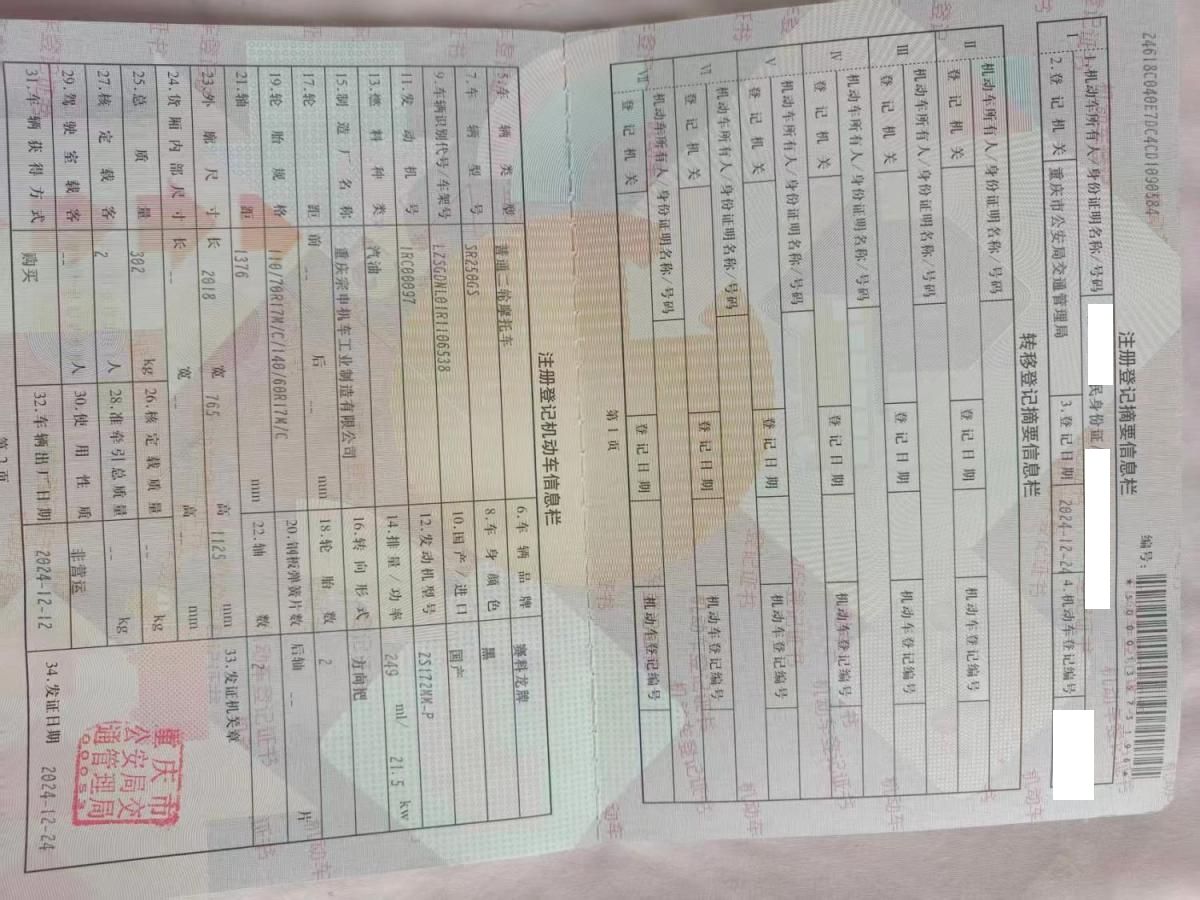 24618C040E7DC4CD1890384
注册登记摘要信息栏 编号:
*5000135973196*
I 1.机动车所有人/身份证明名称/号码 民身份证
2.登记机关 重庆市公安局交通管理局 3.登记日期 2024-12-24 4.机动车登记编号
转移登记摘要信息栏
II 机动车所有人/身份证明名称/号码
登记机关 登记日期 机动车登记编号
III 机动车所有人/身份证明名称/号码
登记机关 登记日期 机动车登记编号
IV 机动车所有人/身份证明名称/号码
登记机关 登记日期 机动车登记编号
V 机动车所有人/身份证明名称/号码
登记机关 登记日期 机动车登记编号
VI 机动车所有人/身份证明名称/号码
登记机关 登记日期 机动车登记编号
VII 机动车所有人/身份证明名称/号码
登记机关 登记日期 机动车登记编号
第1页
注册登记机动车信息栏
5.车辆类型 普通二轮摩托车 6.车辆品牌 赛科龙牌
7.车辆型号 SR250GS 8.车身颜色 黑
9.车辆识别代号/车架号 LZSGDNL01R1106538 10.国产/进口 国产
11.发动机号 1RC00097 12.发动机型号 ZS172MM-P
13.燃料种类 汽油 14.排量/功率 249 ml/ 21.5 kw
15.制造厂名称 重庆宗申机车工业制造有限公司 16.转向形式 方向把
17.轮距 前 -- 后 -- mm 18.轮胎数 2
19.轮胎规格 110/70R17M/C/140/60R17M/C 20.钢板弹簧片数 后轴 -- 片
21.轴距 1376 mm 22.轴数 2
23.外廓尺寸 长 2018 宽 765 高 1125 mm 33.发证机关章
24.货厢内部尺寸 长 -- 宽 -- 高 -- mm
25.总质量 302 kg 26.核定载质量 -- kg
27.核定载客 2 人 28.准牵引总质量 -- kg
29.驾驶室载客 -- 人 30.使用性质 非营运
31.车辆获得方式 购买 32.车辆出厂日期 2024-12-12 34.发证日期 2024-12-24
重庆市
公安局交
通管理局
00053
第2页